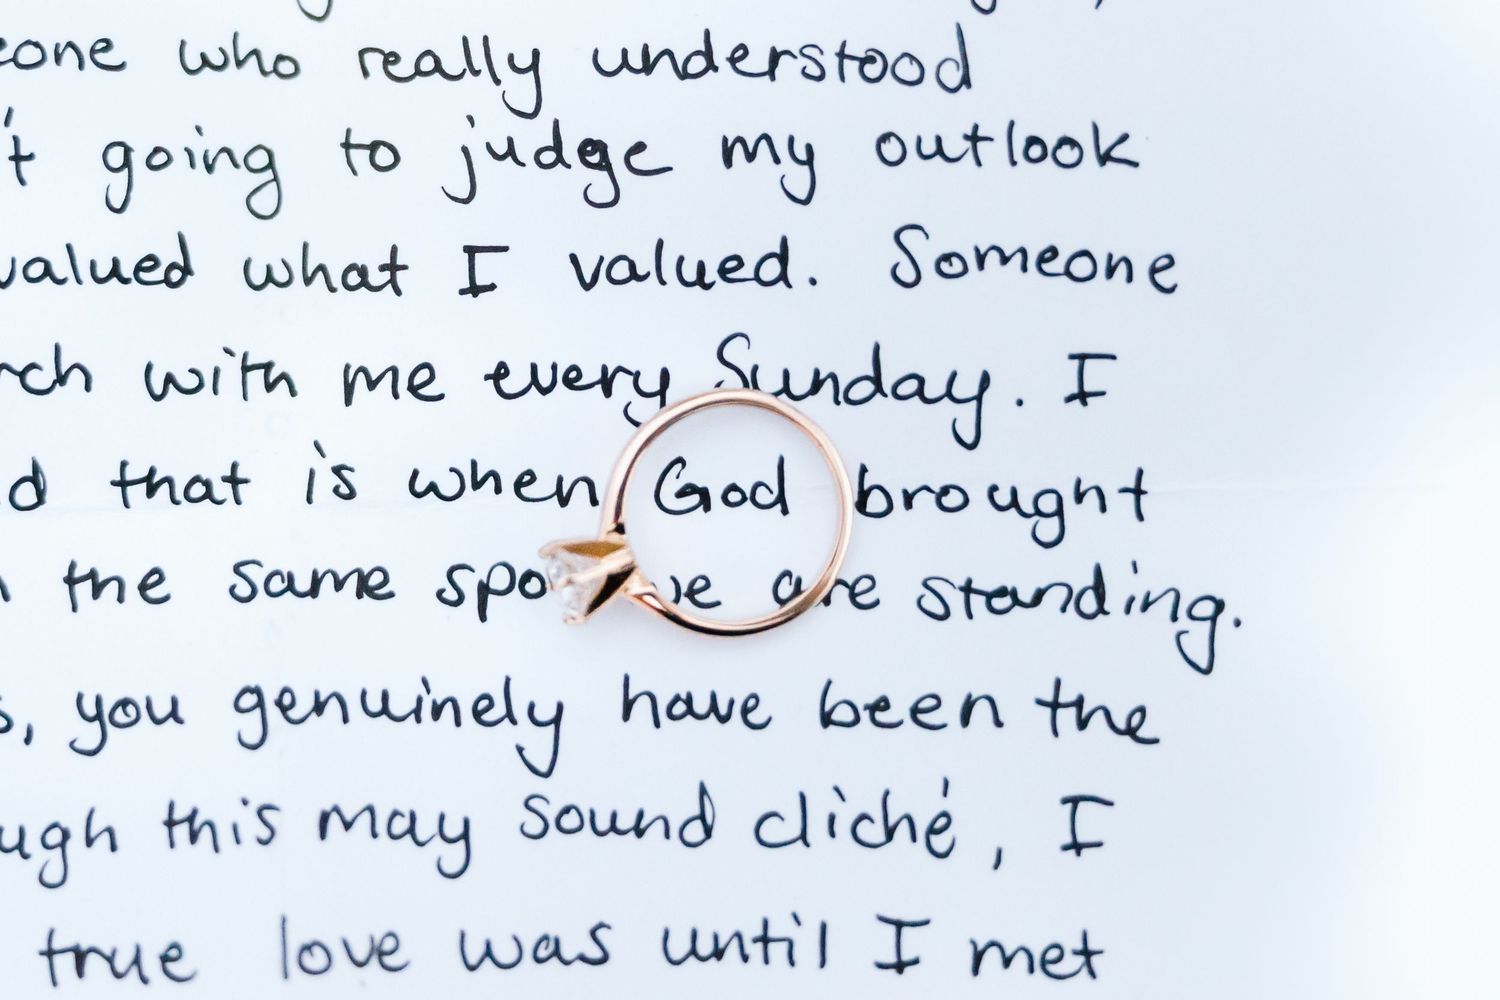 eone who really understood
't going to judge my outlook
valued what I valued. Someone
rch with me every Sunday. I
d that is when God brought
the same spo we are standing.
s, you genuinely have been the
ugh this may sound cliché, I
true love was until I met